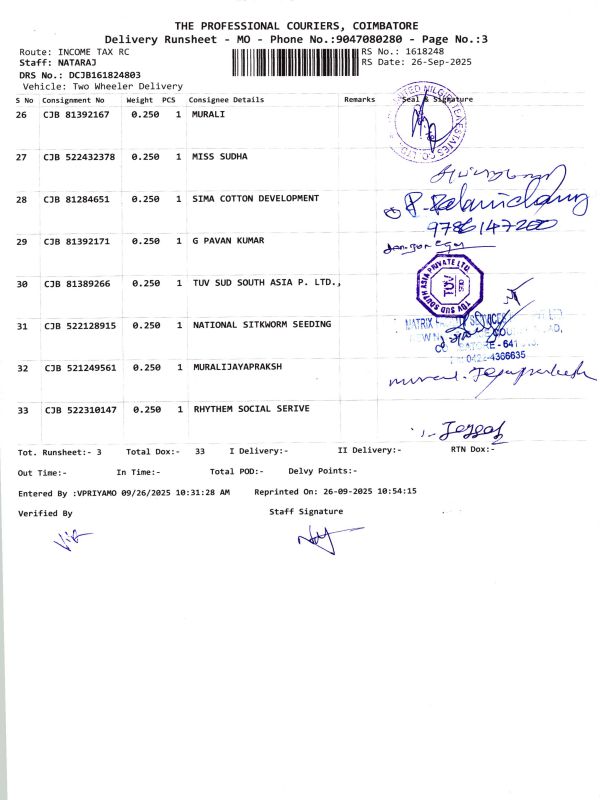 THE PROFESSIONAL COURIERS, COIMBATORE
Delivery Runsheet - MO - Phone No.:9047080280 - Page No.:3
Route: INCOME TAX RC RS No.: 1618248
Staff: NATARAJ RS Date: 26-Sep-2025
DRS No.: DCJB161824803
Vehicle: Two Wheeler Delivery
S No Consignment No Weight PCS Consignee Details Remarks Seal & Signature
26 CJB 81392167 0.250 1 MURALI
27 CJB 522432378 0.250 1 MISS SUDHA
28 CJB 81284651 0.250 1 SIMA COTTON DEVELOPMENT
9786147200
29 CJB 81392171 0.250 1 G PAVAN KUMAR
30 CJB 81389266 0.250 1 TUV SUD SOUTH ASIA P. LTD.,
TUV SUD SOUTH ASIA PRIVATE LTD.
TUV
SUD
31 CJB 522128915 0.250 1 NATIONAL SITKWORM SEEDING
MATRIX
- 641
0422-4366635
32 CJB 521249561 0.250 1 MURALIJAYAPRAKSH
33 CJB 522310147 0.250 1 RHYTHEM SOCIAL SERIVE
Tot. Runsheet:- 3 Total Dox:- 33 I Delivery:- II Delivery:- RTN Dox:-
Out Time:- In Time:- Total POD:- Delvy Points:-
Entered By :VPRIYAMO 09/26/2025 10:31:28 AM Reprinted On: 26-09-2025 10:54:15
Verified By Staff Signature